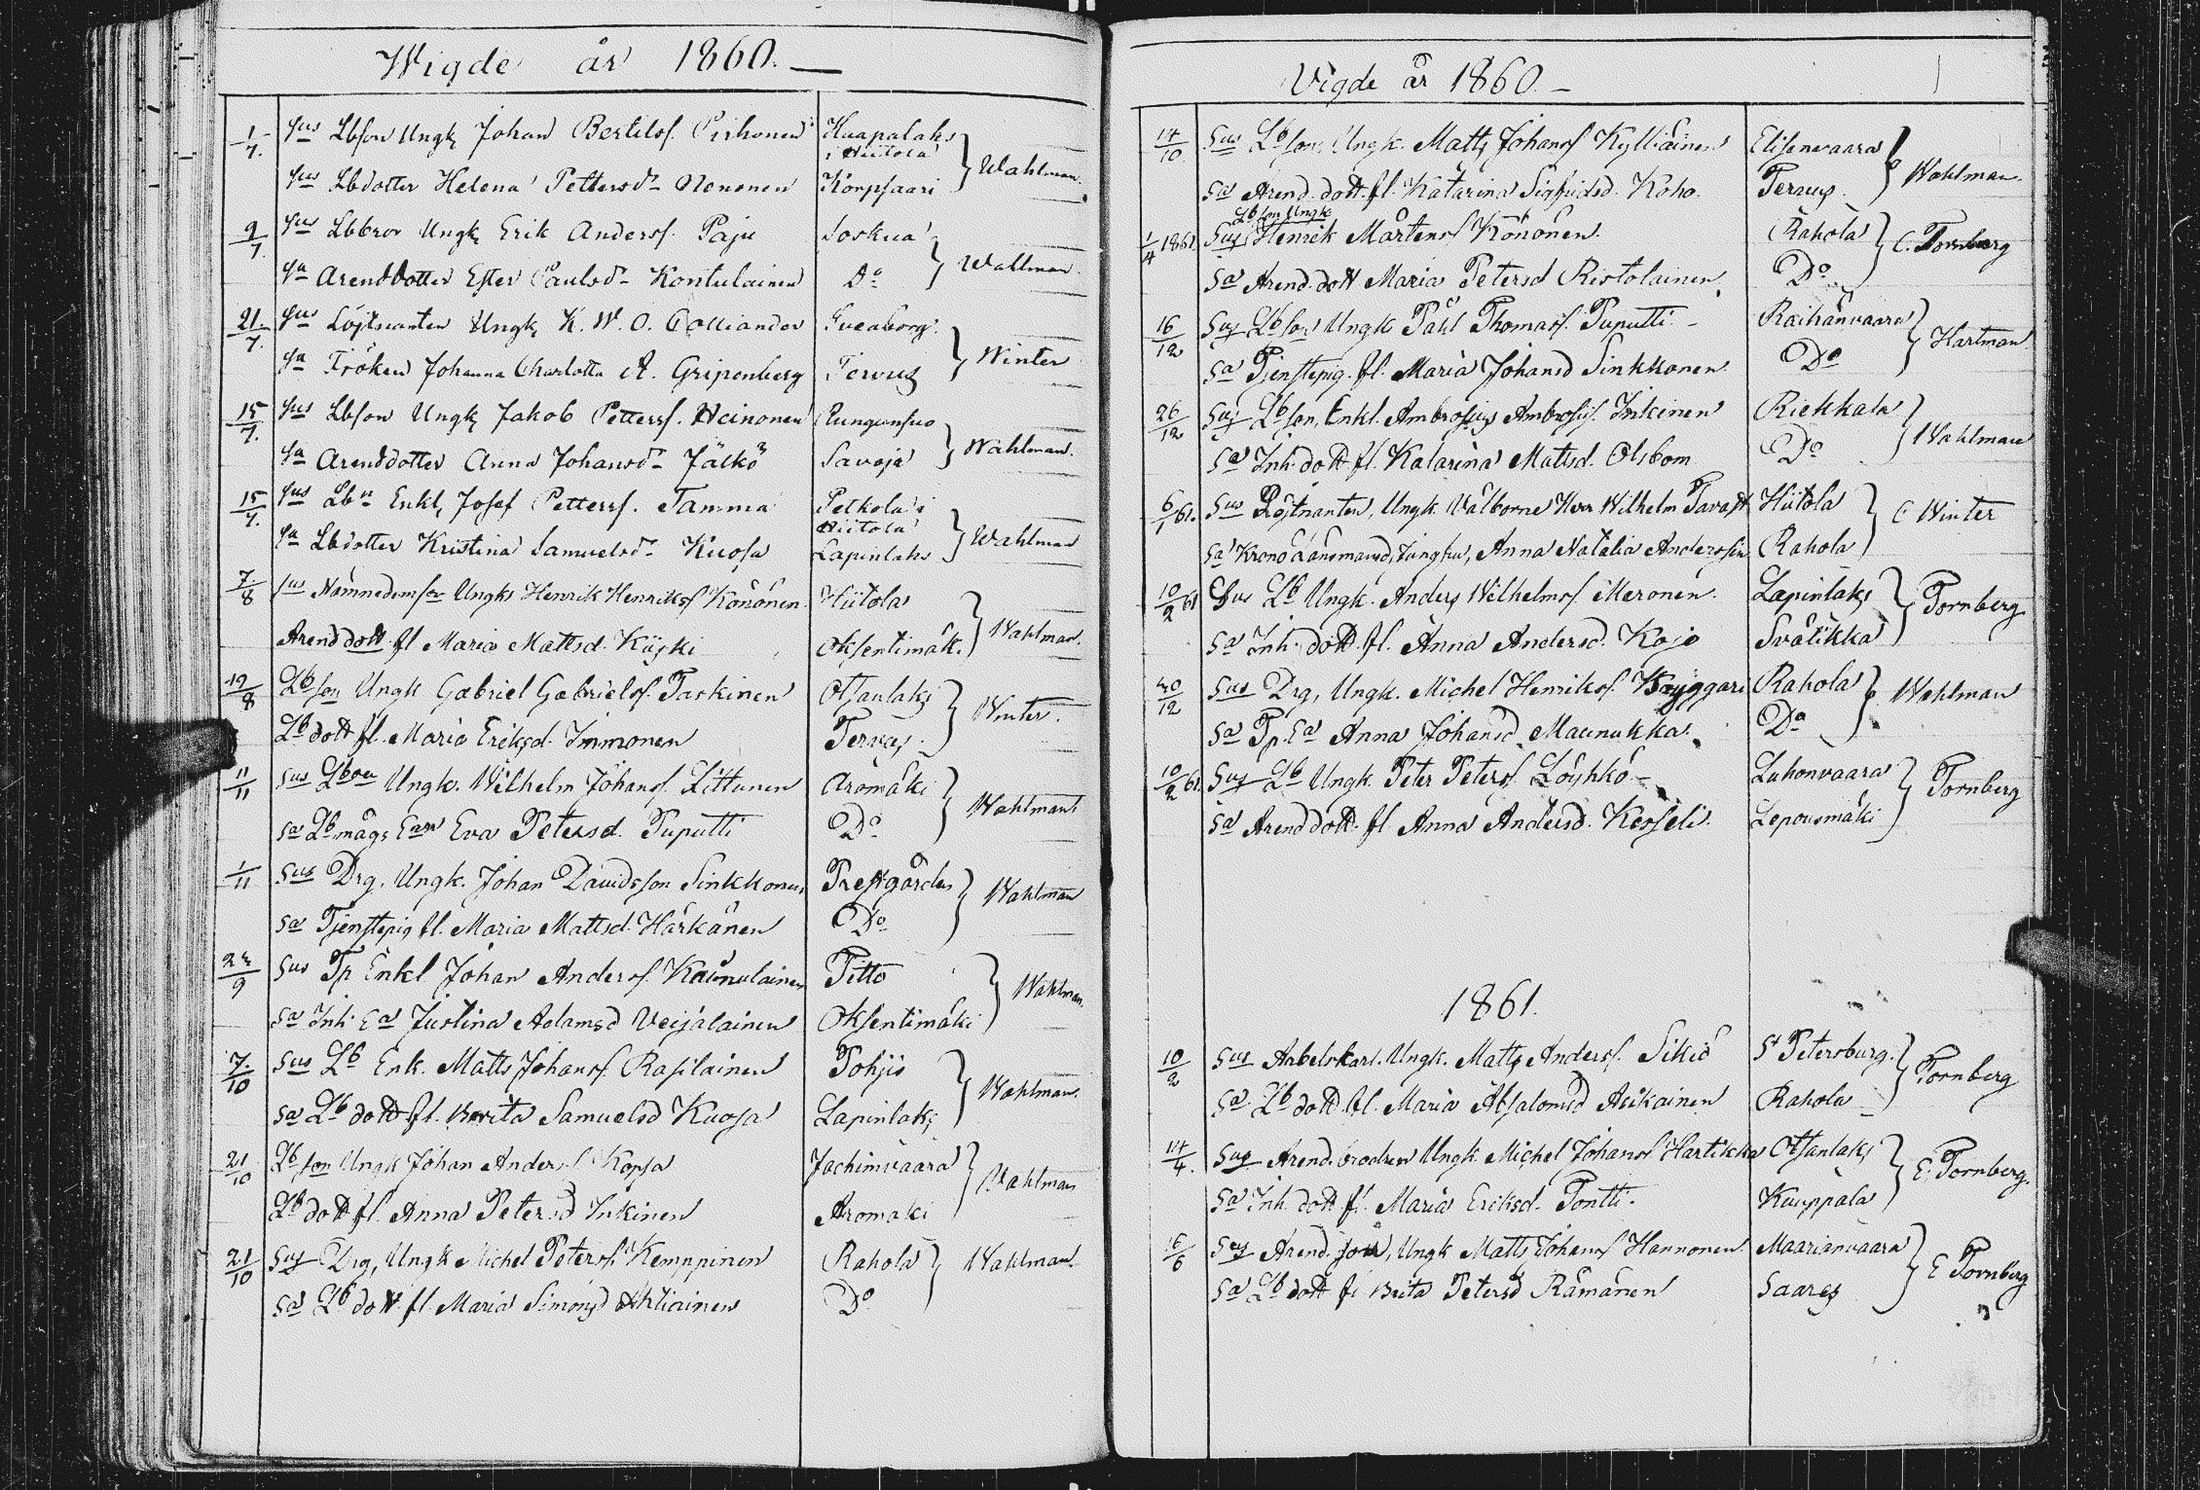 Wigde år 1860.
1/7. sus Lbson Ungk Johan Bertilsf. Pirhonen Haapalaks i Hiitola Wahlman.
sus Lbdotter Helena Pettersd. Nenonen Korpsaari
9/7. sus Lbbror Ungk Erik Andersf. Paju Soskua Wallman.
sa Arenddotter Ester Paulsd. Kontulainen Do
21/7. sus Löjtnanten Ungk K. W. O. Calliander Sveaborg Winter
sa Fröken Johanna Charlotta A. Gripenberg Tervus
15/7. sus Lbson Ungk Jakob Petterss. Heinonen Wahlman.
sa Arenddotter Anna Johansd. Jälkö Savoja
15/7. sus Lbn Enkl, Josef Petterss. Tamma Petkola i Hiitola Wahlman
sa Lbdotter Kristina Samuelsd. Kuosa Lapinlaks
7/8 sus Nämndemson Ungk Henrik Henriksf Könönen Hiitola Wahlman.
Arenddott. fl Maria Mattsd. Kiiski Oksentimäk.
19/8 Lbson Ungk Gabriel Gabrielsf. Taskinen Otsanlaks Winter.
Lb dott fl. Maria Eriksd. Immonen Tervus
11/11 sus Ungk. Wilhelm Johansf. Littunen Aromäki Wahlman
sa Lb mågs Ean Eva Petersd. Puputti Do
1/11 sus Drg. Ungk. Johan Davidsson Sinkkonen Prestgården Wahlman
sa Tjenstepig fl. Maria Mattsd. Härkänen Do
24/9 sus Tp Enkl Johan Andersf. Kaunulainen Titto Wahlman.
sa Inh. Ea Justina Adamsd Veijalainen Oksentimäki
7/10 sus Lb Enk. Matts Johansf. Rasilainen Pohjis Wahlman.
sa Lb dott fl. Brita Samuelsd Kuosa Lapinlaks
21/10 Lb son Ungk Johan Andersf Kopsa Jachimvaara Wahlman
Lb dott fl. Anna Petersd Inkinen Aromäki
21/10 sus Drg, Ungk Michel Petersf. Kemppinen Rahola Wahlman
sa Lb dott fl. Maria Simonsd Ahtiainen Do
Vigde år 1860.
14/10 sus Lb son, Ungk. Matts Johansf Kylliäinen Elisenvaara Wahlman.
sa Arend. dott. fl. Katarina Sigfridsd. Koho. Tervus
Lb son Ungk
1/4 1861. sus Henrik Mårtensf Könönen. Rahola C. Tornberg
sa Arend. dott Maria Petersd Ristolainen Do
16/12 sus Lb son Ungk Påhl Thomasf. Puputti Raihänvaara Hartman
sa Tjenstepig. fl. Maria Johansd Sinkkonen Do
26/12 sus Lb son, Enkl. Ambrosius Ambrosiif. Inkinen Riekkala Wahlman
sa Inh. dott fl. Katarina Mattsd. Olsbom Do
6/1 61. sus Löjtnanten, Ungk. Välborne Herr Wilhelm Tavast Hiitola C Winter
sa Krono Länsmansd, Jungfru, Anna Natalia Andersin Rahola
10/2 61 sus Lb Ungk. Anders Wilhelmsf. Meronen. Lapinlaks Tornberg
sa Inh. dott. fl. Anna Andersd. Kojo Svätikkä
30/12 sus Drg, Ungk. Michel Henriksf. Bryggari Rahola Wahlman
sa Tp. Ea Anna Johansd. Maunukka. Do
10/2 61. sus Lb Ungk Peter Petersf. Löyhkö Luhonvaara Tornberg
sa Arend dott. fl Anna Andersd. Kesseli. Lepousmäki
1861.
10/2 sus Arbetskarl. Ungk. Matts Andersf. Sikiö St Petersburg. Tornberg
sa. Lb dott. fl. Maria Absalomsd Asikainen Rahola
14/4. sus Arend. brodren Ungk. Michel Johansf Hartikka Otsanlaks E. Tornberg.
sa Inh. dott fl. Maria Eriksd. Pontti. Kauppala
16/6 sus Arend. son, Ungk Matts Johansf Hannonen. Maarianvaara E Tornberg
sa Lb dott fl Brita Petersd Rämänen Saares